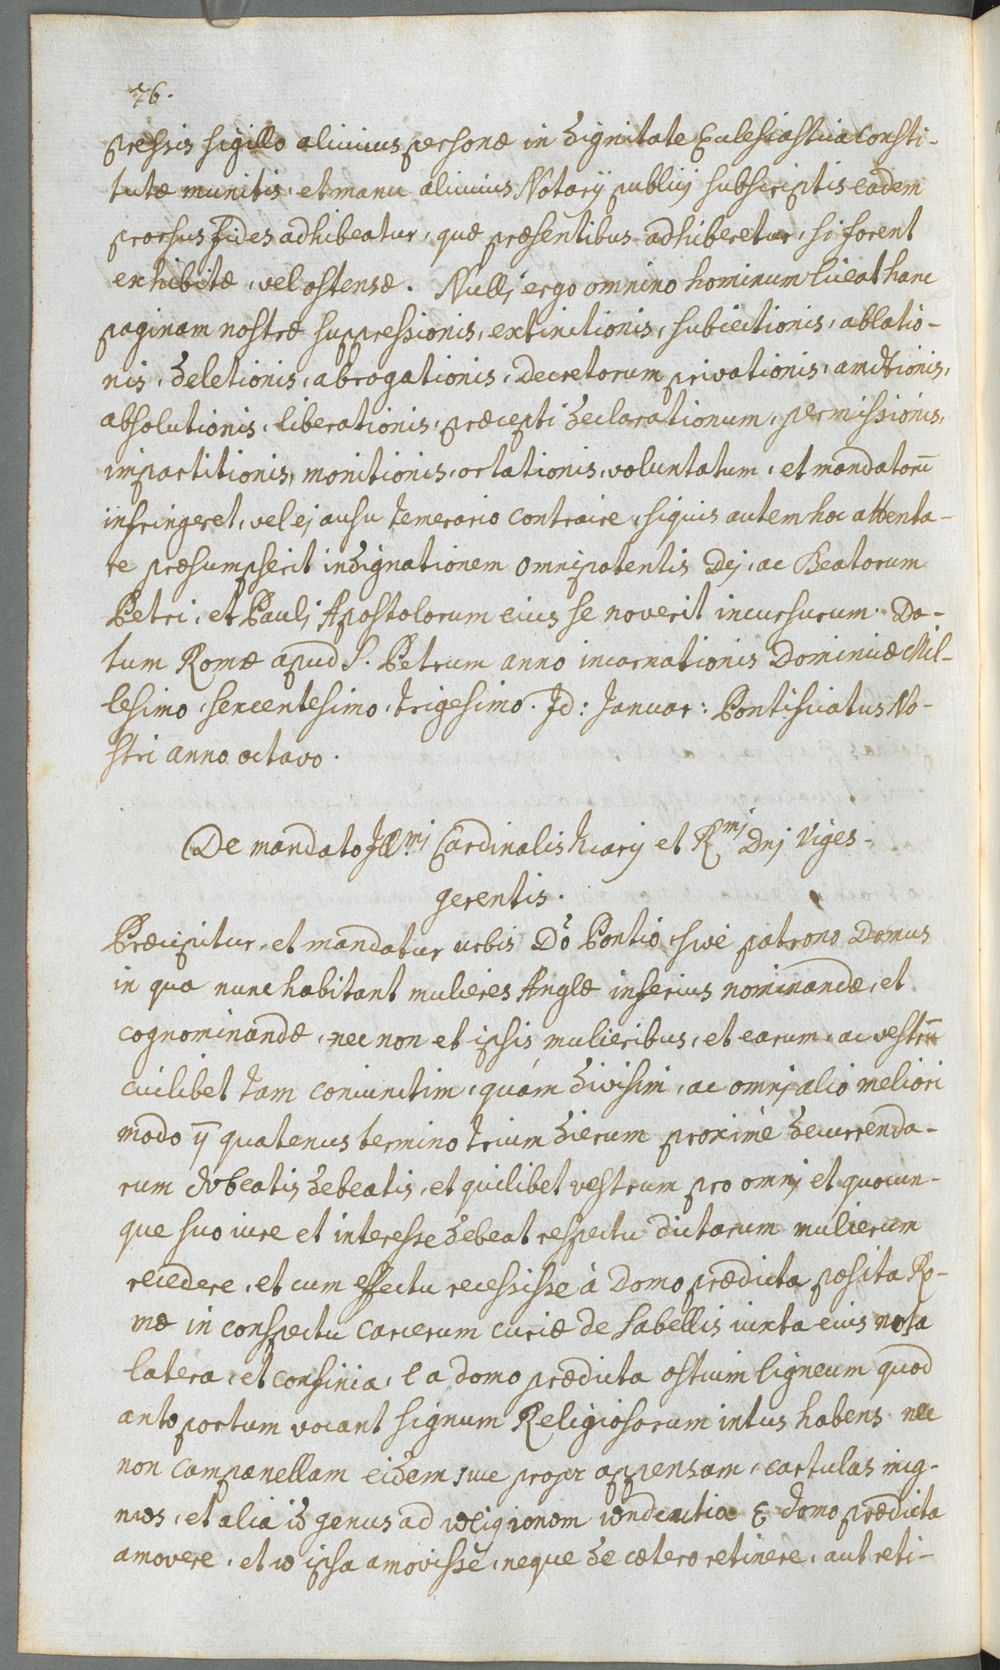 76.
pressis sigillo alicuius personæ in dignitate Ecclesiastica consti-
tutæ munitis, et manu alicuius Notarij publicj subscriptis eadem
prorsus fides adhibeatur, quæ præsentibus adhiberetur, si forent
exhibitæ, vel ostensæ. Nullj ergo omnino hominum liceat hanc
paginam nostræ suppressionis, extinctionis, subiectionis, ablatio-
nis, deletionis, abrogationis, Decretorum privationis, amotionis,
absolutionis, liberationis, præcepti declarationum, permissionis,
impartitionis, monitionis, ortationis, voluntatum, et mandatorū
infringeret, vel ej ausu temerario contraire, siquis autem hoc attenta-
re præsumpserit indignationem omnipotentis Dej, ac Beatorum
Petri, et Paulj Apostolorum eius se noverit incursurum. Da-
tum Romæ apud S. Petrum anno incarnationis Dominicæ Mil-
lesimo, sexcentesimo, trigesimo. Id: Januar: Pontificatus No-
stri anno octavo.
De mandato Ill.mj Cardinalis Vicarij et R.mj Dnj Viges-
gerentis.
Præcipitur, et mandatur vobis Dō Pontio sive patrono Domus
in qua nunc habitant mulieres Anglæ inferius nominandæ, et
cognominandæ, nec non et ipsis mulieribus, et earum, ac vestrū
cuilibet tam coniunctim, quàm divisim, ac omnj alio meliori
modo ꝫ quatenus termino trium dierum proximè decurrenda-
rum debeatis, et quilibet vestrum pro omnj et quocun-
que suo iure et interesse debeat respectu dictarum mulierum
recedere, et cum effectu recessisse à Domo prædicta posita Ro-
mæ in conspectu carcerum curiæ de Sabellis iuxta eius nota
latera, et confinia, e a domo prædicta ostium ligneum quod
anto portum vocant signum Religiosarum intus habens nec
non campanellam eidem sive propr appensam, cartulas
et alia id genus ad religionem domo prædicta
amovere, et ipsa amovisse, neque de cætero retinere, aut reti-